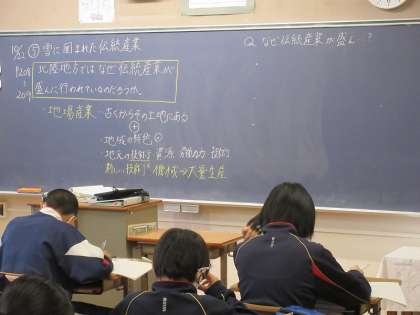 雪に囲まれた伝統産業
北陸地方ではなぜ伝統産業が
盛んに行われているのだろうか。
・地場産業-古くからその土地にある
・地域の特色
・地元の技術 資源 労働力
新しい技術 機械→大量生産
Q なぜ伝統産業が盛ん?